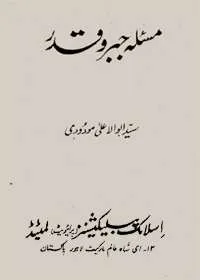 مسئلہ جبر و قدر
سید ابوالاعلیٰ مودودی
اسلامک پبلیکیشنز (پرائیویٹ) لمیٹڈ
۱۳۔ ای شاہ عالم مارکیٹ لاہور پاکستان